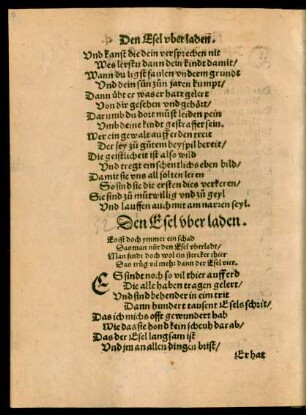 Den Esel vberladen.
Vnd kanst die dein versprechen nit
Wes lerstu dann dein kindt damit/
Wann du ligst faulen vnderm grundt
Vnd dein sün zůn jaren kumpt/
Dann übt er was er hatt gelert
Von dir gesehen vnd gehört/
Darumb du dort můst leiden pein
Vmb deine kindt gestraffet sein.
Wer ein gewalt auff erden treit
Der sey zů gůtem beyspil bereit/
Die geistlicheit ist also wild
Vnd tregt ein schentlichs eben bild/
Damit sie vns all solten leren
So sind sie die ersten dies verkeren/
Sie sind zů můtwillig vnd zů geyl
Vnd lauffen auch mit am narren seyl.
Den Esel vber laden.
Es ist doch ymmer ein schad
Das man nůr den Esel vberladt/
Man findt doch wol ein stercker thier
Das trüg vil meh: dann der Esel vier.
ES sindt noch so vil thier auff erd
Die alle haben tragen gelert/
Vnd sind behender in eim trit
Dann hundert tausent Esels schrit/
Das ich michs offt gewundert hab
Wie das sie hond kein scheuh darab/
Das der Esel langsam ist
Vnd jm an allen dingen brist/
Er hat